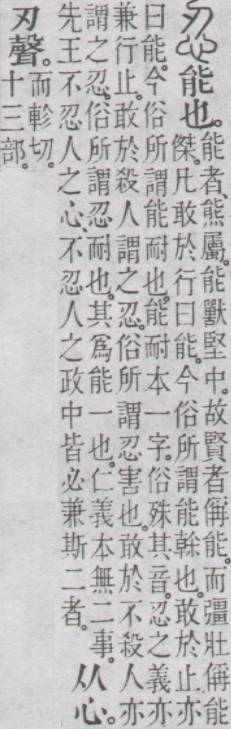 忍 能也。
能者、熊屬。能獸堅中。故賢者偁能。而彊壯偁能
傑。凡敢於行曰能。今俗所謂能榦也。敢於止亦
曰能。今俗所謂能耐也。能耐本一字。俗殊其音。忍之義亦
兼行止。敢於殺人謂之忍。俗所謂忍害也。敢於不殺人亦
謂之忍。俗所謂忍耐也。其爲能一也。仁義本無二事。
先王不忍人之心不忍人之政中皆必兼斯二者。
从心。
刃聲。
而軫切。
十三部。